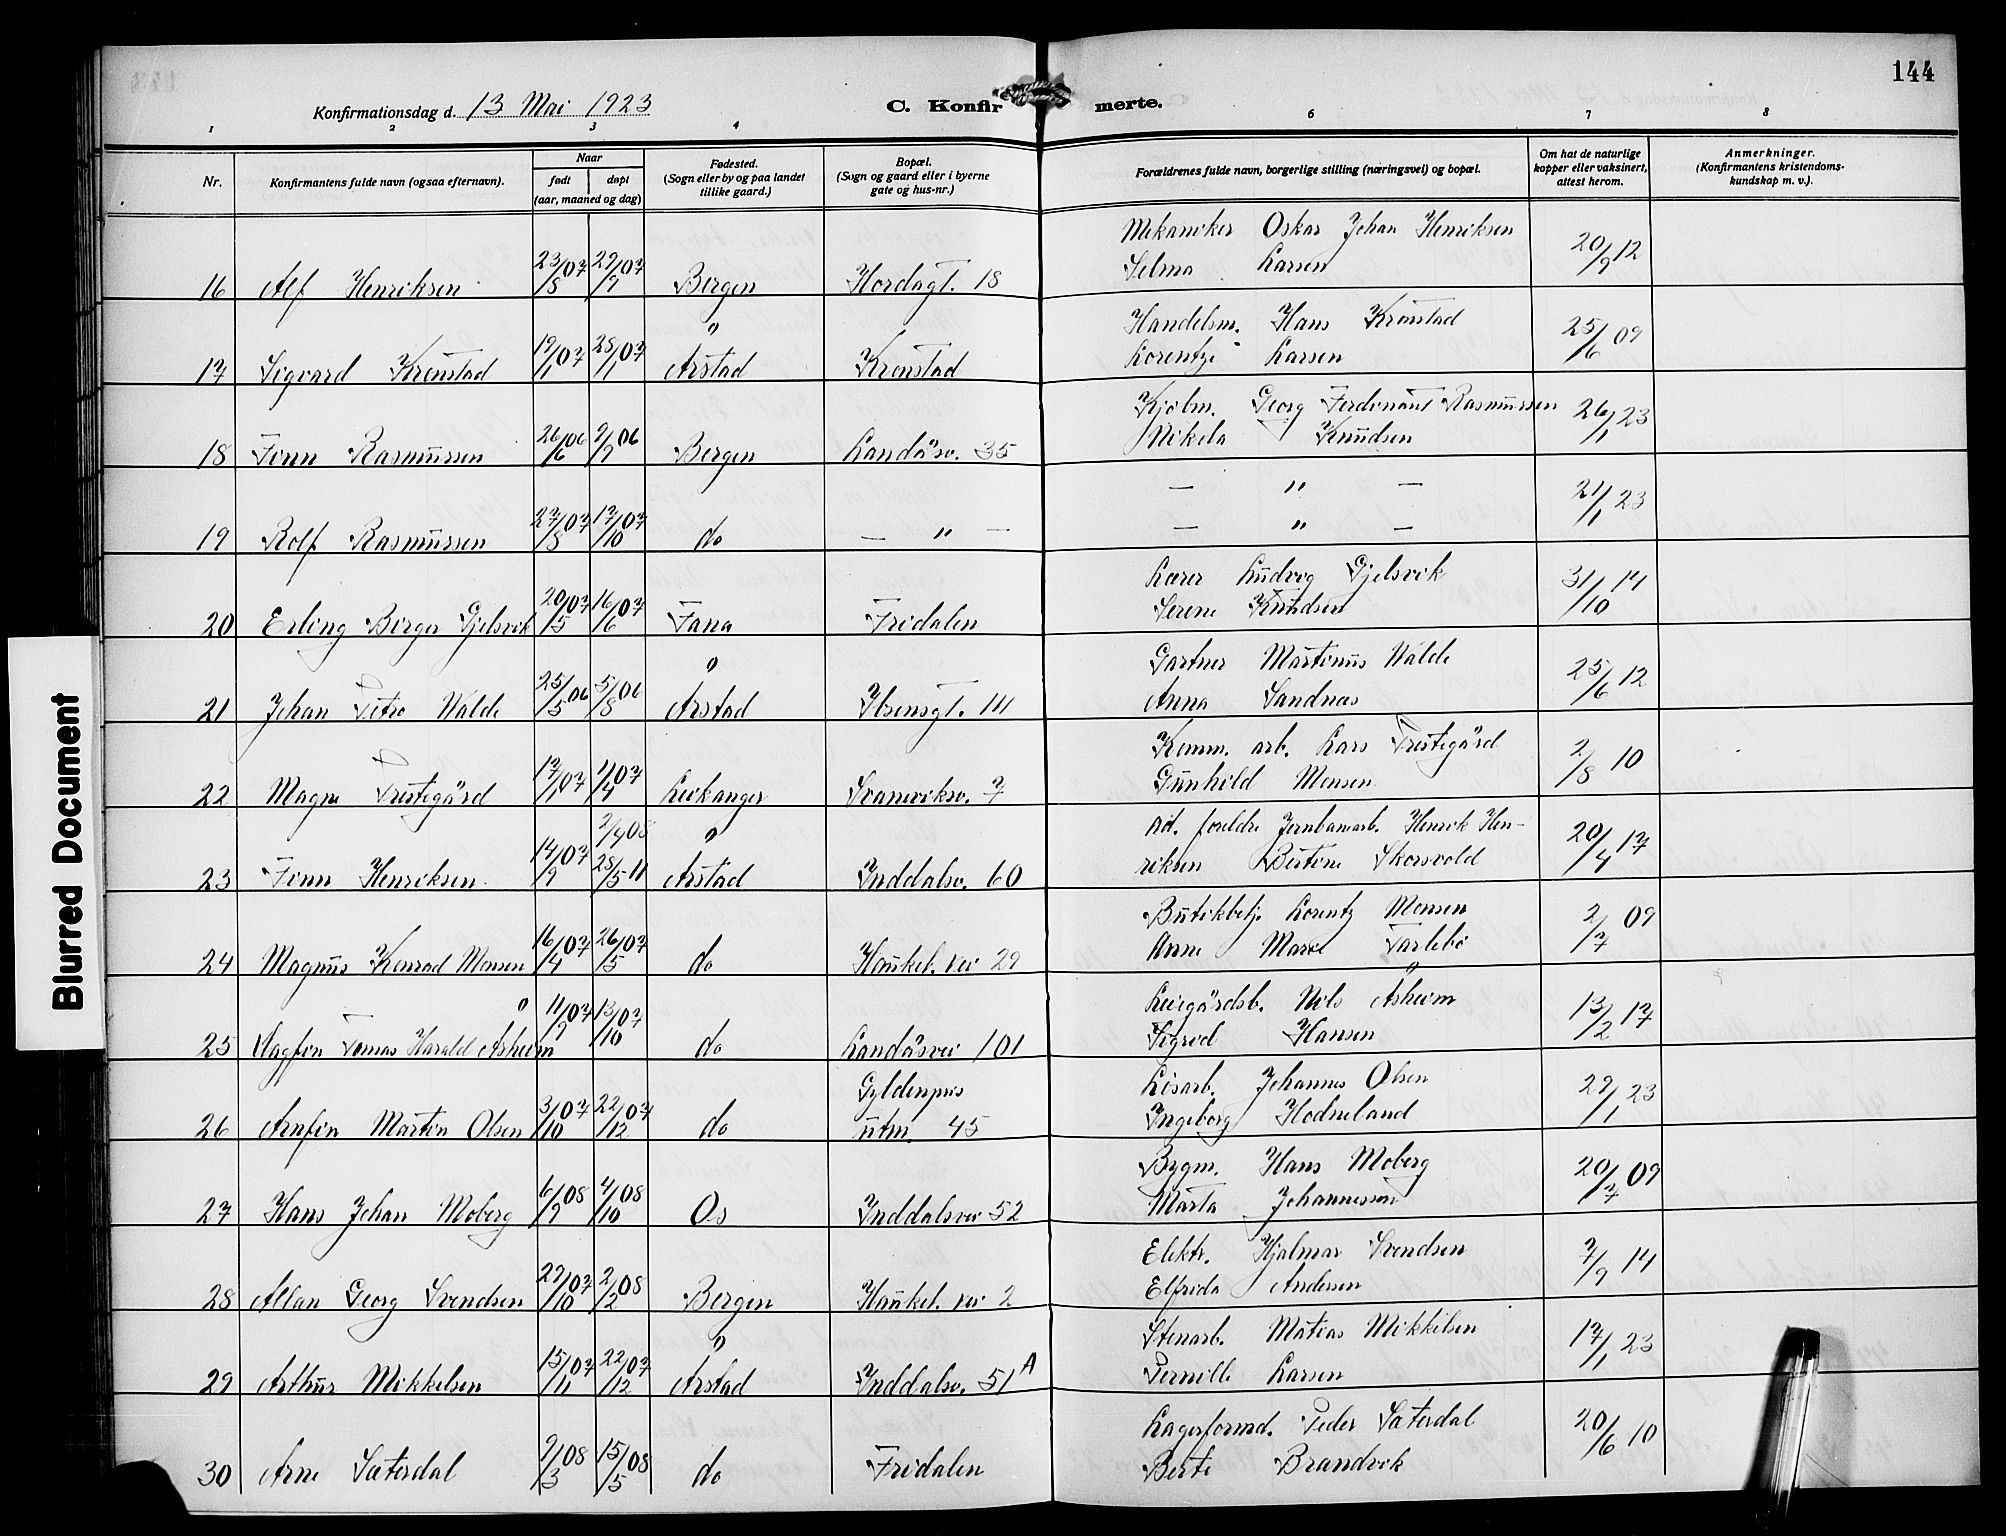 144
Konfirmationsdag d. 13 Mai 1923
C. Konfirmerte.
1 2 3 4 6 7 8
Nr.
Konfirmantens fulde navn (ogsaa efternavn).
Naar
født døpt
(aar, maaned og dag)
Fødested.
(Sogn eller by og paa landet
tillike gaard.)
Bopæl.
(Sogn og gaard eller i byerne
gate og hus-nr.)
Forældrenes fulde navn, borgerlige stilling (næringsvei) og bopæl.
Om hat de naturlige
kopper eller vaksinert,
attest herom.
Anmerkninger.
(Konfirmantens kristendoms-
kundskap m. v.).
Mekaniker Oskar Johan Henriksen
16 Alf Henriksen 23/8 07 29/9 07 Bergen Hordagt. 18 Selma Larsen 20/9 12
Handelsm. Hans Kronstad
17 Sigvard Kronstad 19/1 07 28/1 07 Årstad Kronstad Lorentze Larsen 25/6 09
Kjølm. Georg Ferdinant Rasmussen
18 Finn Rasmussen 26/6 06 9/9 06 Bergen Landåsv. 35 Mikela Knudsen 26/1 23
— " —
19 Rolf Rasmussen 27/8 07 17/10 07 do — " — — " — 21/1 23
Lærer Ludvig Gjelsvik
20 Erling Birger Gjelsvik 20/5 07 16/6 07 Fana Fridalen Serene Knudsen 31/10 14
Gartner Martinus Walde
21 Johan Petro Walde 25/5 06 5/8 06 Årstad Ibsensgt. 111 Anna Sandnæs 25/6 12
Komm. arb. Lars Prestegård
22 Magne Prestegård 17/1 07 1/4 07 Leikanger Svaneviksv. 7 Gunhild Monsen 2/8 10
Ad. foreldre Jernbanearb. Henrik Hen-
23 Finn Henriksen 14/9 07 2/4 08 28/5 11 Årstad Inddalsv. 60 riksen Bertine Skorsvold 20/4 17
Butikbetj. Lorentz Monsen
24 Magnus Konrad Monsen 16/4 07 26/5 07 do Haukel. vei 29 Anne Marie Tarlebø 2/7 09
Leiegårdsb. Nils Åsheim
25 Dagfin Tomas Harald Åsheim 11/9 07 13/10 07 do Landåsvei 101 Sigrid Hansen 13/2 17
Gyldenpris Løsarb. Johannes Olsen
26 Arnfin Martin Olsen 3/10 07 22/12 07 do utm. 45 Ingeborg Hodneland 29/1 23
Bygm. Hans Moberg
27 Hans Johan Moberg 6/9 08 4/10 08 Os Inddalsvei 52 Marta Johannessen 20/7 09
Elektr. Hjalmar Svendsen
28 Allan Georg Svendsen 29/10 07 2/2 08 Bergen Haukel. vei 2 Elfrida Andersen 7/9 14
Stenarb. Matias Mikkelsen
29 Arthur Mikkelsen 15/11 07 22/12 07 Årstad Inddalsv. 51A Pernille Larsen 17/1 23
Lagerformd. Peder Sæterdal
30 Arne Sæterdal 9/3 08 15/5 08 do Fridalen Berte Brandvik 20/6 10
Blurred Document